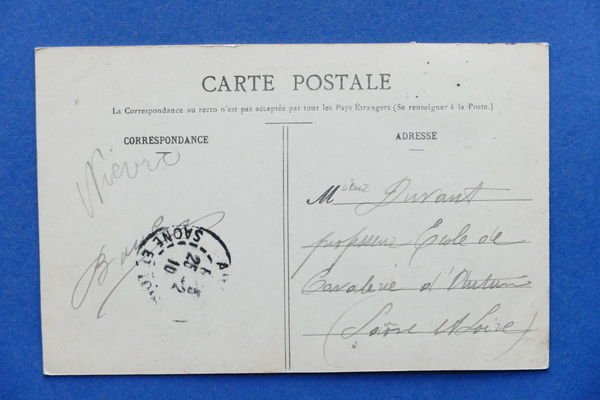 CARTE POSTALE
La Correspondance au recto n'est pas acceptée par tous les Pays Étrangers (Se renseigner à la Poste.)
CORRESPONDANCE
ADRESSE
Nièvre
Mieur Durant
professeur Ecole de
Cavalerie d'Autun
(Saône et Loire)
SAONE ET
25
10